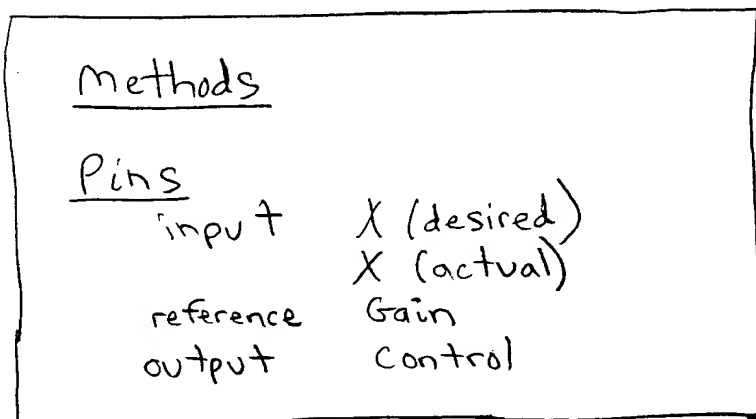 Methods
Pins
input X (desired)
X (actual)
reference Gain
output Control